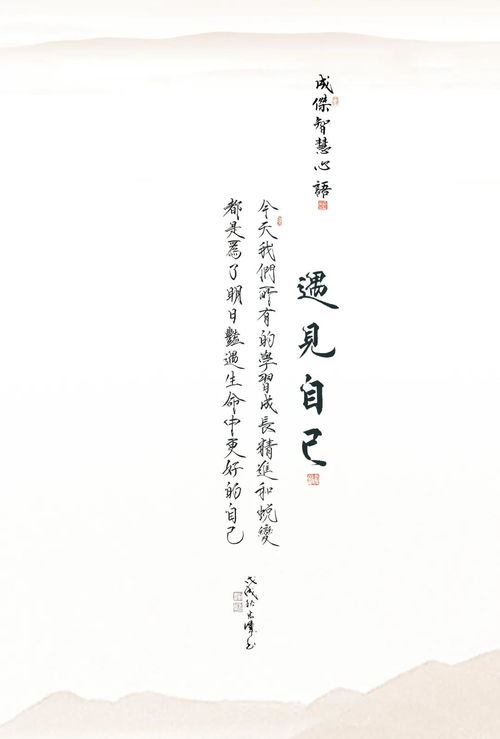 成傑智慧心語
遇見自己
今天我們所有的學習成長精進和蛻變
都是為了明日豔遇生命中更好的自己